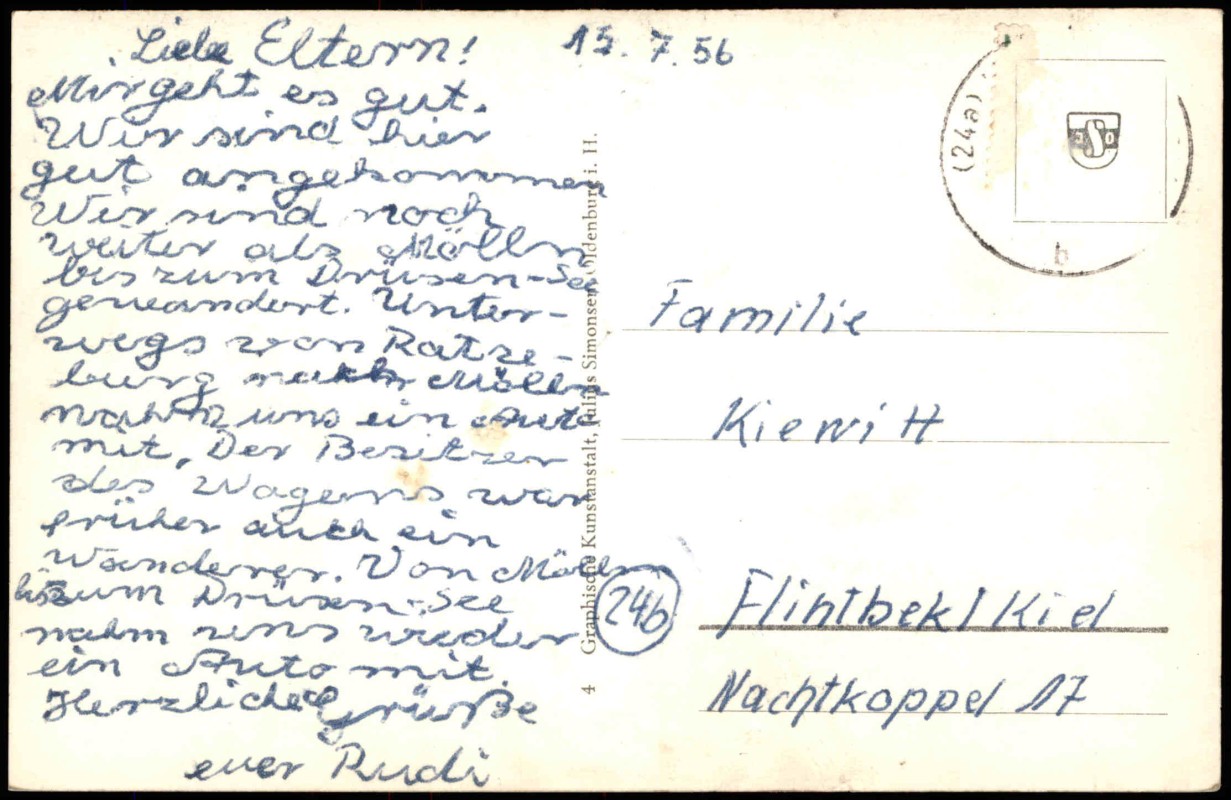 Liebe Eltern!
15. 7. 56
Mir geht es gut.
Wir sind hier
gut angekommen
Wir sind noch
weiter als Mölln
bis zum Drüsen-See
gewandert. Unter-
wegs von Ratze-
burg nach Mölln
nahm uns ein Auto
mit. Der Besitzer
des Wagens war
früher auch ein
Wanderer. Von Mölln
bis zum Drüsen-See
nahm uns wieder
ein Auto mit.
Herzliche Grüße
euer Rudi
4 Graphische Kunstanstalt, Julius Simonsen, Oldenburg i. H.
(24a)
b
JSO
Familie
Kiewitt
(24b) Flintbek/Kiel
Nachtkoppel 17